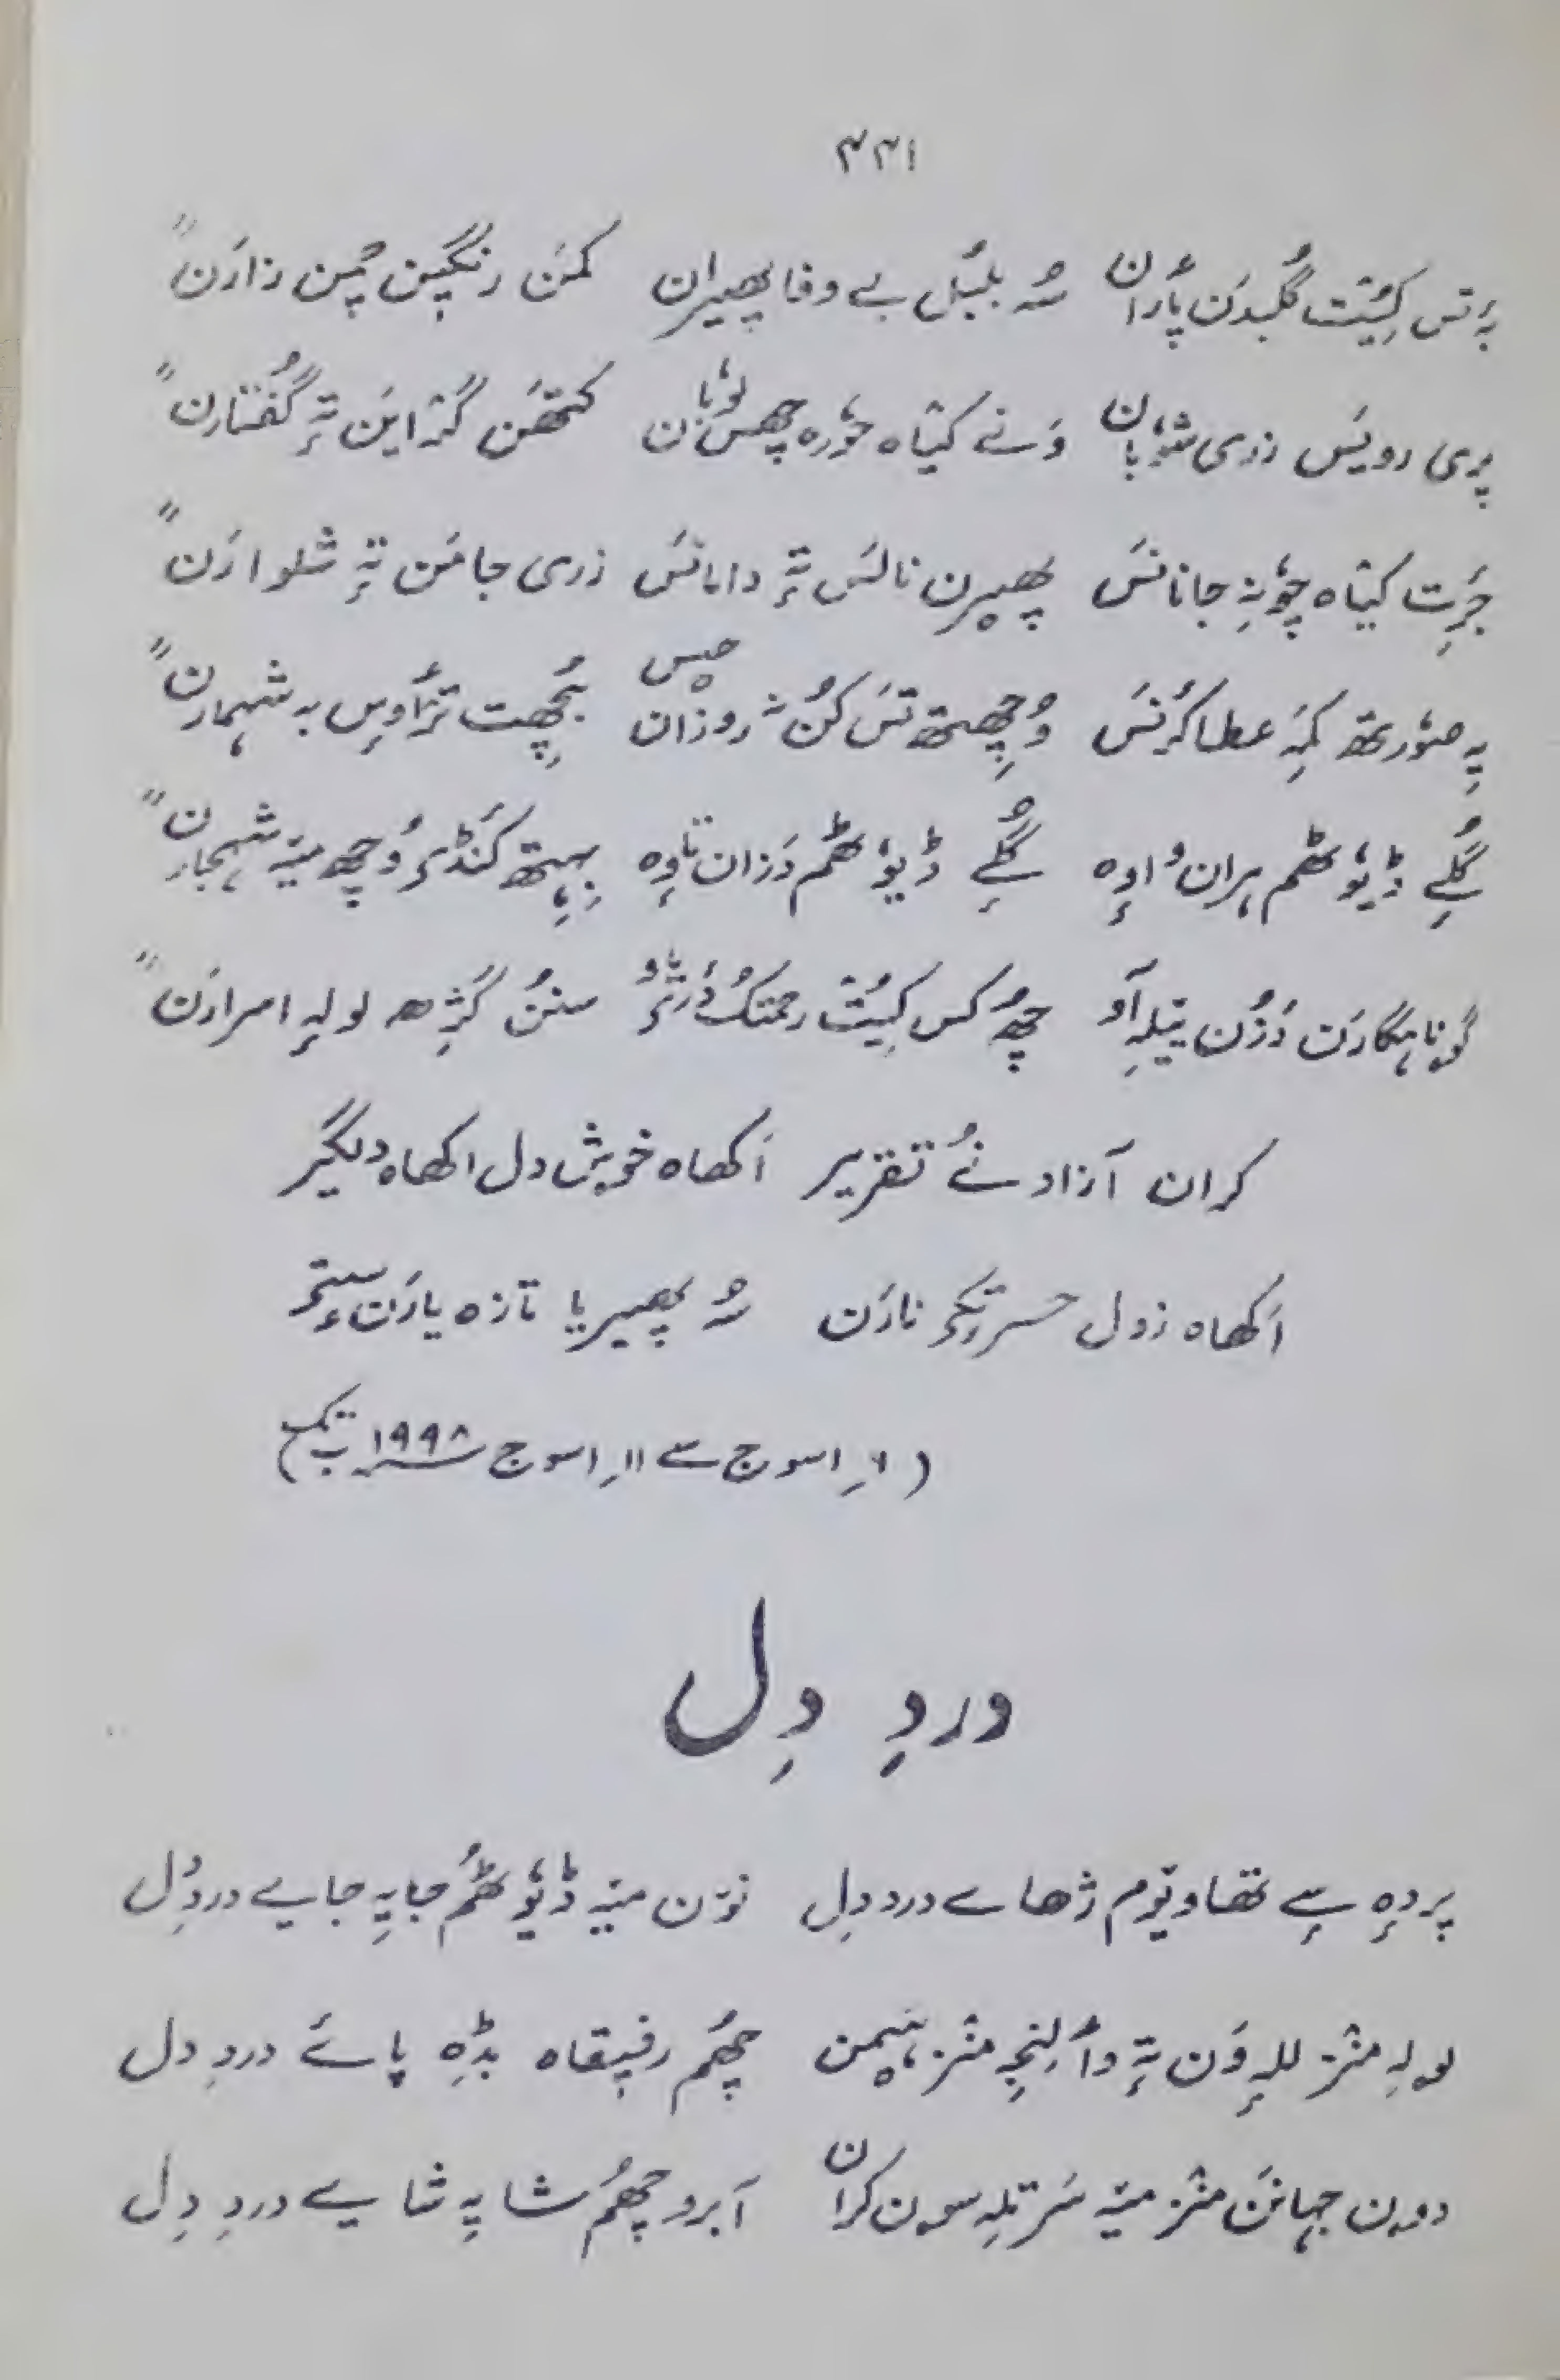 ۳۳۱
بہ تس کِیُت گُلبدَن پأران سُہ بلبُل بے وفا پھیران کمَن رنگین چمن زارَن "
پری رویَس زری شوٗبان وَنے کیٛاہ حوٗرہ چھس لوٗبان کتھَن گژاین تہٕ گُفتارن "
جَرِت کیٛاہ چھُنہٕ جانانَس پھیرن نالَس تہٕ دامانَس زری جامَن تہٕ شلوارَن "
یہِ صوٗرتھ کمہِ عطا کٔرنَس وُچھِتھ تَس کُن نہ روزان حِس بچھِت ترٛأوِس بہ شہمارن "
گُلے ڈیوٗٹھم ہران اوٕہ گُلے ڈیوٗٹھم دَزان تاوٕہ بہِتھ کَنڈی وُچھ میہٕ شہجارن "
گوناہگارَن دَزُن ییلہِ آو چھُ کس کِیُت رحمتُک دٔریاو سنُن گژھہ لولہٕ اسرارَن "
کران آزاد نٔے تقریر اَکھاہ خوش دل اکھاہ دلگیر
اَکھاہ زول حسرتکی نارَن سُہ پھیریا تازہ یارَن سٟتی
(۶؍ اسوج سے ۱۱؍ اسوج ۱۹۹۸ ب تک)
دردِ دِل
پردہٕ سے تھاوتوم ژھاے درد دِل نوٚن میہٕ ڈیوٗٹھُم جایہِ جایے دردِ دِل
لولہِ منٛز للہٕ وَن تہٕ وألِنجہِ منٛز ہیمن چھُم رفیقاہ بڈہِ پایے دردِ دل
دون جہانَن منٛز میہٕ سَرتلہِ سون کران آبرو چھُم شایہِ شایے دردِ دِل